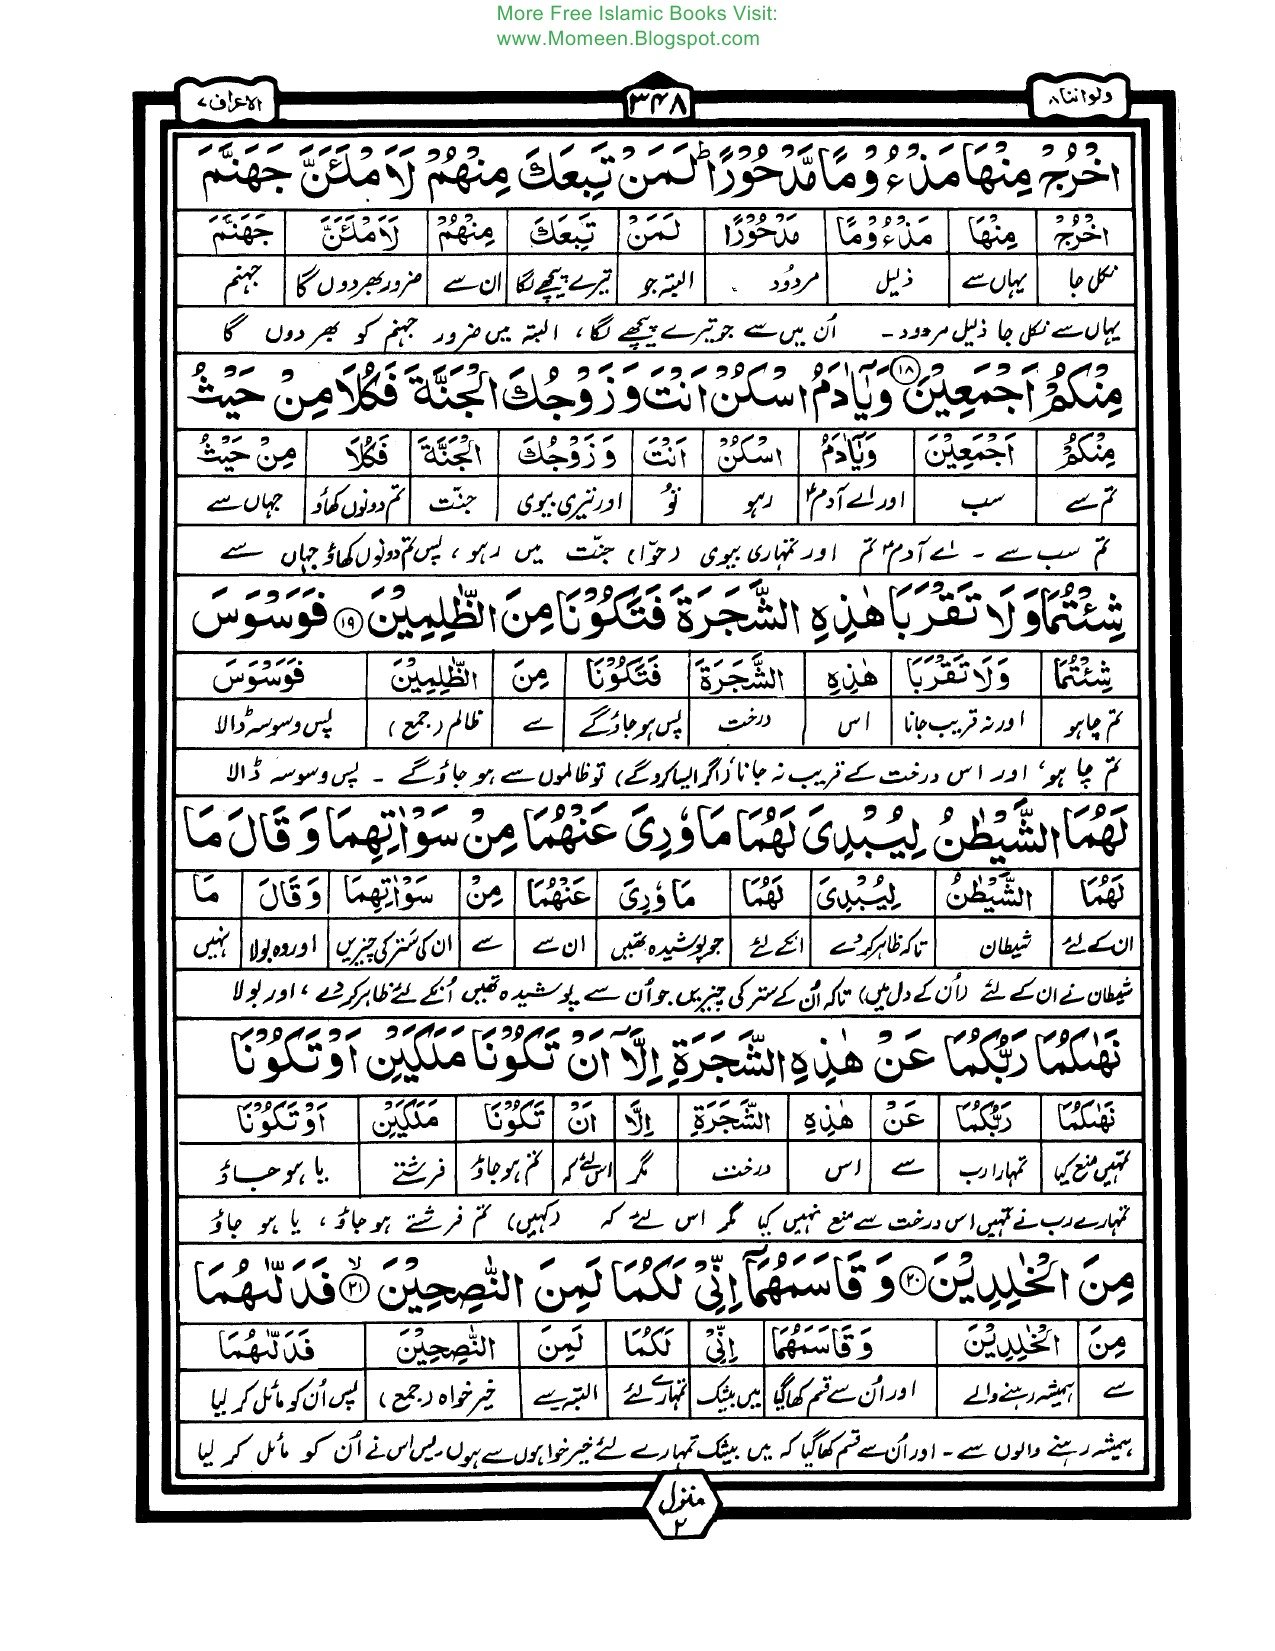 More Free Islamic Books Visit:
www.Momeen.Blogspot.com
ولواننا ۸ ۳۴۸ الاعراف ۷
اخْرُجْ مِنْهَا مَذْءُوْمًا مَّدْحُوْرًا ؕ لَمَنْ تَبِعَكَ مِنْهُمْ لَاَمْلَئَنَّ جَهَنَّمَ
اخْرُجْ مِنْهَا مَذْءُوْمًا مَدْحُوْرًا لَمَنْ تَبِعَكَ مِنْهُمْ لَاَمْلَئَنَّ جَهَنَّمَ
نکل جا یہاں سے ذلیل مردود البتہ جو تیرے پیچھے لگا ان سے ضرور بھر دوں گا جہنم
یہاں سے نکل جا ذلیل مردود۔ اُن میں سے جو تیرے پیچھے لگا، البتہ میں ضرور جہنم کو بھر دوں گا
مِنْكُمْ اَجْمَعِيْنَ ﴿۱۸﴾ وَيٰٓاٰدَمُ اسْكُنْ اَنْتَ وَزَوْجُكَ الْجَنَّةَ فَكُلَا مِنْ حَيْثُ
مِنْكُمْ اَجْمَعِيْنَ وَيٰٓاٰدَمُ اسْكُنْ اَنْتَ وَزَوْجُكَ الْجَنَّةَ فَكُلَا مِنْ حَيْثُ
تم سے سب اور اے آدمؑ رہو تُو اور تیری بیوی جنّت تم دونوں کھاؤ جہاں سے
تم سب سے۔ اے آدمؑ تم اور تمہاری بیوی (حوّا) جنّت میں رہو، پس تم دونوں کھاؤ جہاں سے
شِئْتُمَا وَلَا تَقْرَبَا هٰذِهِ الشَّجَرَةَ فَتَكُوْنَا مِنَ الظّٰلِمِيْنَ ﴿۱۹﴾ فَوَسْوَسَ
شِئْتُمَا وَلَا تَقْرَبَا هٰذِهِ الشَّجَرَةَ فَتَكُوْنَا مِنَ الظّٰلِمِيْنَ فَوَسْوَسَ
تم چاہو اور نہ قریب جانا اس درخت پس ہو جاؤگے سے ظالم (جمع) پس وسوسہ ڈالا
تم چاہو، اور اس درخت کے قریب نہ جانا (اگر ایسا کروگے) تو ظالموں سے ہو جاؤگے۔ پس وسوسہ ڈالا
لَهُمَا الشَّيْطٰنُ لِيُبْدِىَ لَهُمَا مَا وٗرِىَ عَنْهُمَا مِنْ سَوْاٰتِهِمَا وَقَالَ مَا
لَهُمَا الشَّيْطٰنُ لِيُبْدِىَ لَهُمَا مَا وٗرِىَ عَنْهُمَا مِنْ سَوْاٰتِهِمَا وَقَالَ مَا
ان کے لئے شیطان تاکہ ظاہر کر دے انکے لئے جو پوشیدہ تھیں ان سے سے ان کی ستر کی چیزیں اور وہ بولا نہیں
شیطان نے ان کے لئے (اُن کے دل میں) تاکہ اُن کے ستر کی چیزیں جو اُن سے پوشیدہ تھیں اُنکے لئے ظاہر کر دے، اور بولا
نَهٰىكُمَا رَبُّكُمَا عَنْ هٰذِهِ الشَّجَرَةِ اِلَّآ اَنْ تَكُوْنَا مَلَكَيْنِ اَوْ تَكُوْنَا
نَهٰىكُمَا رَبُّكُمَا عَنْ هٰذِهِ الشَّجَرَةِ اِلَّا اَنْ تَكُوْنَا مَلَكَيْنِ اَوْ تَكُوْنَا
تمہیں منع کیا تمہارا رب سے اس درخت مگر اس لئے کہ تم ہو جاؤ فرشتے یا ہو جاؤ
تمہارے رب نے تمہیں اس درخت سے منع نہیں کیا مگر اس لئے کہ (کہیں) تم فرشتے ہو جاؤ، یا ہو جاؤ
مِنَ الْخٰلِدِيْنَ ﴿۲۰﴾ وَقَاسَمَهُمَآ اِنِّىْ لَكُمَا لَمِنَ النّٰصِحِيْنَ ﴿۲۱﴾ ۙ فَدَلّٰىهُمَا
مِنَ الْخٰلِدِيْنَ وَقَاسَمَهُمَا اِنِّىْ لَكُمَا لَمِنَ النّٰصِحِيْنَ فَدَلّٰىهُمَا
سے ہمیشہ رہنے والے اور اُن سے قسم کھا گیا میں بیشک تمہارے لئے البتہ سے خیر خواہ (جمع) پس اُن کو مائل کر لیا
ہمیشہ رہنے والوں سے۔ اور اُن سے قسم کھا گیا کہ میں بیشک تمہارے لئے خیر خواہوں سے ہوں۔ پس اس نے اُن کو مائل کر لیا
منزل
۲